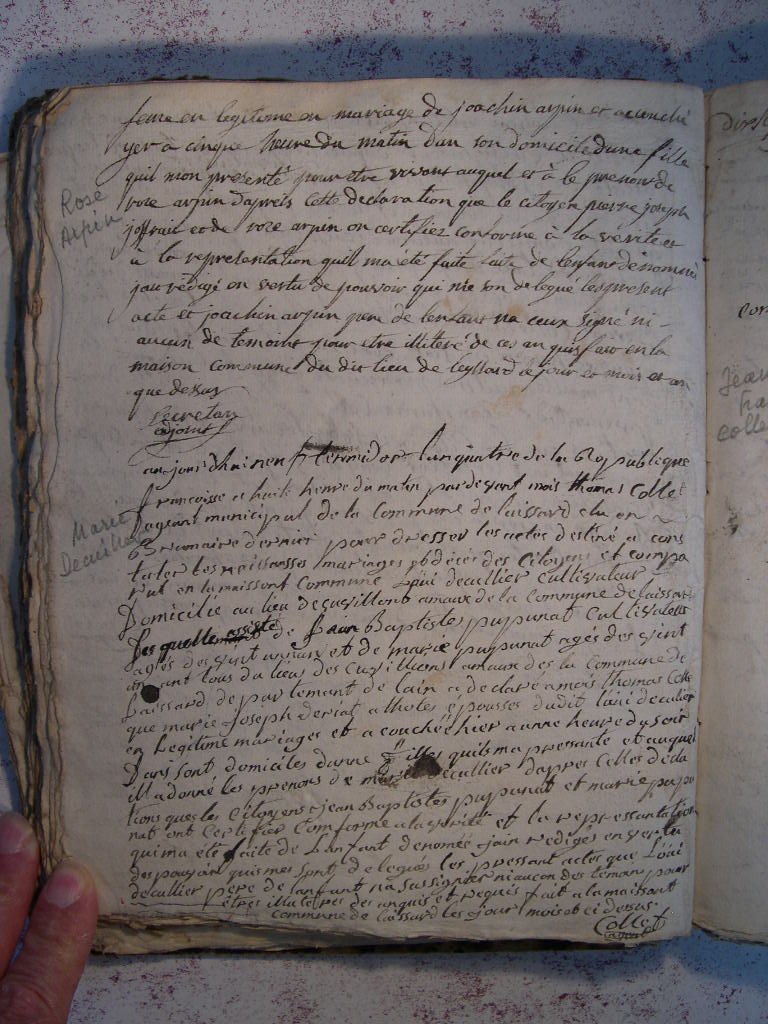 feme en legitime en mariage de joachin arpin et acouché
yer a cinque heure du matin dan son domicile dune fille
quil mon presenté pour etre vivant auquel et à le prenom de
roze arpin dapres cette declaration que le citoyen pierre joseph
joffrait et de roze arpin on certifiez conforme à la verité et
à la representation quil ma été faite de lenfant denommé
jai rédigé en vertu de pouvoir qui me son delegué les present
acte et joachin arpin pere de lenfant na ceux signé ni
aucun de temoins pour etre illiteré de ces an quis fait en la
maison commune du dit lieu de leyssard le jour et mois et an
que dessus
Secretan
adjoint
Rose
Arpin
aujourdhai neuf termidor lanquatre de la Republique
francoise a huite heure du matin pardevant mois thomas Collet
lageant municipal de la Commune de laissard elu en
Brumaire dernier pour dresser les actes destiné a cons
tater les naissansses mariages et décés des Citoyens et compa
rut en la maissont Commune Loüi decullier Cultivateur
Domicilié au lieu de cuvillont amaux de la Commune de laissard
Les quelle assisté de Jain Baptistes pupunat Cultivateur
agés des vint annux et de marie pupunat agés des vint
un ant tous du lieu des Cuvillions amaux des la Commune de
Laissard de partement de lain a declaré amois thomas Collet
que marie joseph deriat a lholes epousses dudit Loüi decullier
en Legitime mariages et a couchéé hier a unne heure du soir
Dans sont domiciles dunne filles quils ma pressante et auquel
ill adonné les prenons de marie decullier dapres Celles decla
tions ques les Citoyens jean Baptistes pupunat et marie pupu
nat ont Certifier Comforme a la verité et la representation
qui ma été faite de Lanfant denomée jain rediges en vertu
des pouvoir quis mes sont de legués les pressant actes que Loüi
decullier pere de lanfant na sussignier niaucon des temon pour
etres illutéres des anquis et requis fait a la maissont
commune de laissard les jour mois et ci dessus
Collet
agent
Marie
Decullier
Jean
fra
colle